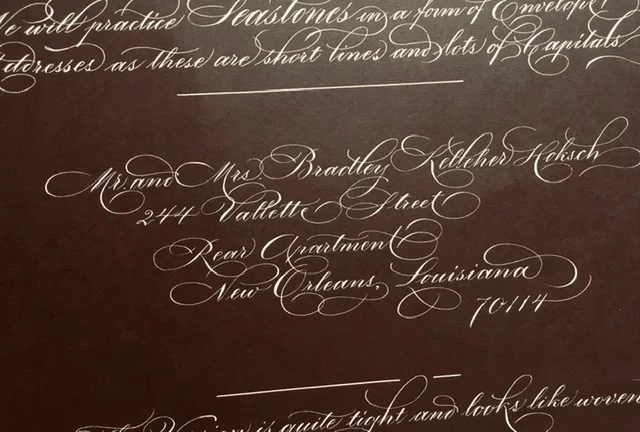 We will practice Seastones in a form of Envelope
Addresses as these are short lines and lots of Capitals
Mr. and Mrs. Bradley Kelleher Hoksch
244 Vallette Street
Rear Apartment
New Orleans, Louisiana
70114
is quite tight and looks like woven